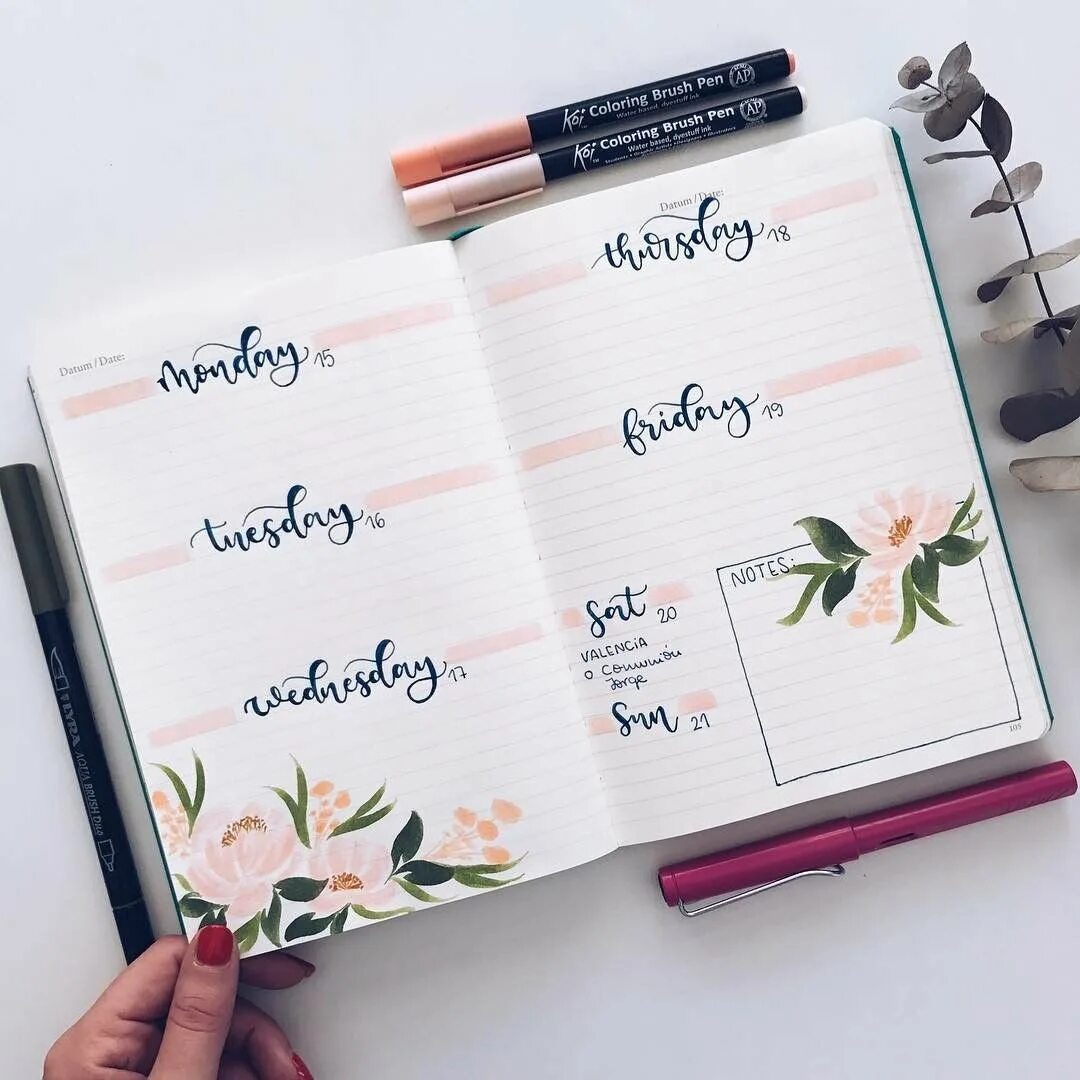 Koi Coloring Brush Pen AP
Water based, dyestuff ink
Koi Coloring Brush Pen AP
Water based, dyestuff ink
Students • Graphic Artists • Designers • Illustrators
Datum / Date:
monday 15
tuesday 16
wednesday 17
Datum / Date:
thursday 18
friday 19
Sat 20
VALENCIA
o Comunión
Jorge
Sun 21
NOTES:
105
LYRA AQUA BRUSH DUO